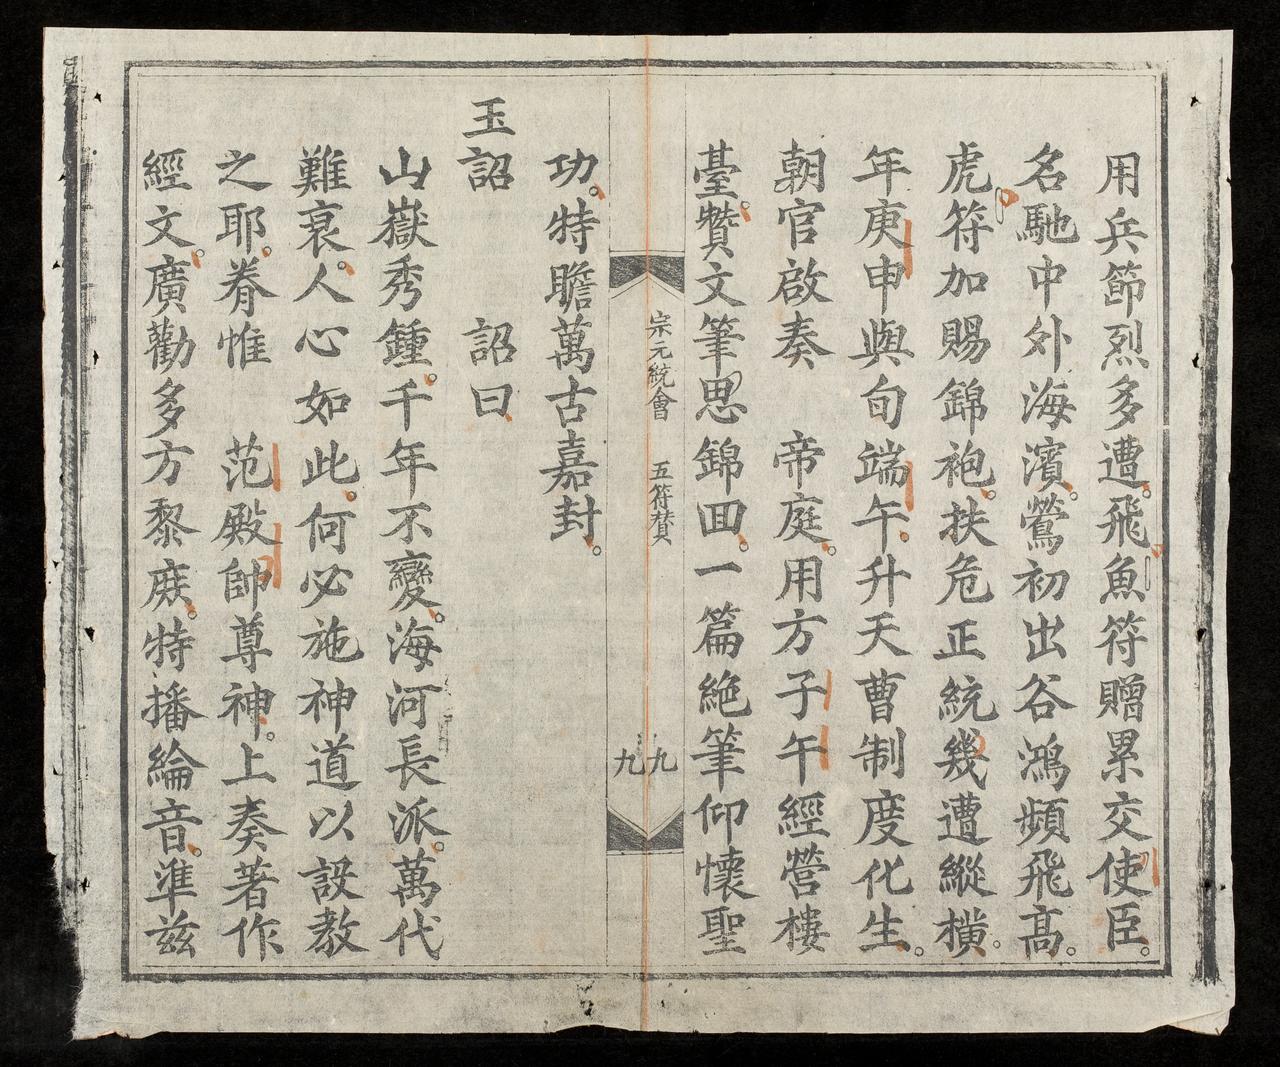 用兵節烈多遭。飛魚符贈累交使臣。
名馳中外海濱。鶯初出谷鴻頻飛高。
虎符加賜錦袍。扶危正統幾遭縱橫。
年庚申與旬端午。升天曹制度化生。
朝官啟奏　帝庭。用方子午經營樓
臺。贊文筆思錦回。一篇絕筆仰懷聖
宗元統會　五符贊　九九
功。特瞻萬古嘉封。
玉詔　詔曰
山嶽秀鍾。千年不變。海河長派。萬代
難衰。人心如此。何必施神道以設教
之耶。眷惟　范殿帥尊神。上奏著作
經文。廣勸多方黎庶。特播綸音。準茲